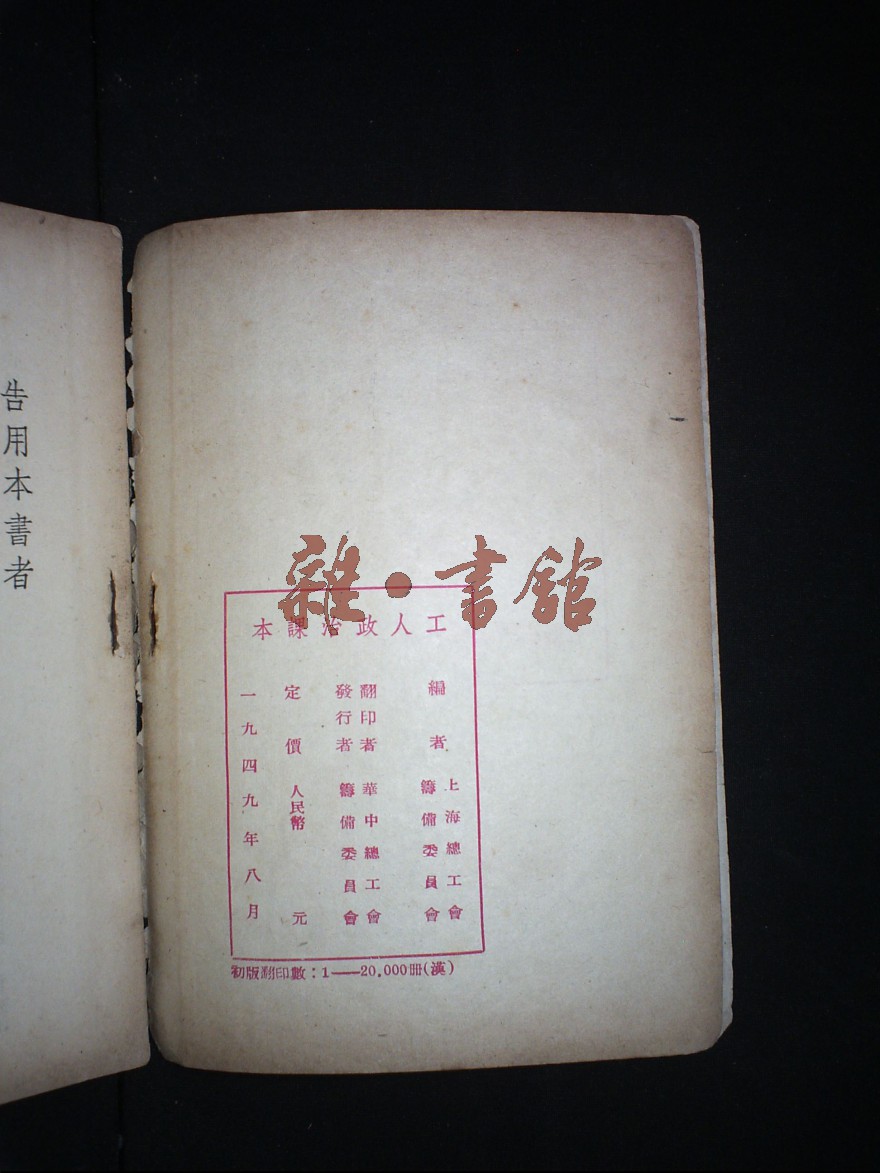 告用本書者
雜·書館
工人政治課本
編者 上海總工會籌備委員會
翻印者發行者 華中總工會籌備委員會
定價 人民幣 元
一九四九年八月
初版翻印數:1——20,000冊(漢)